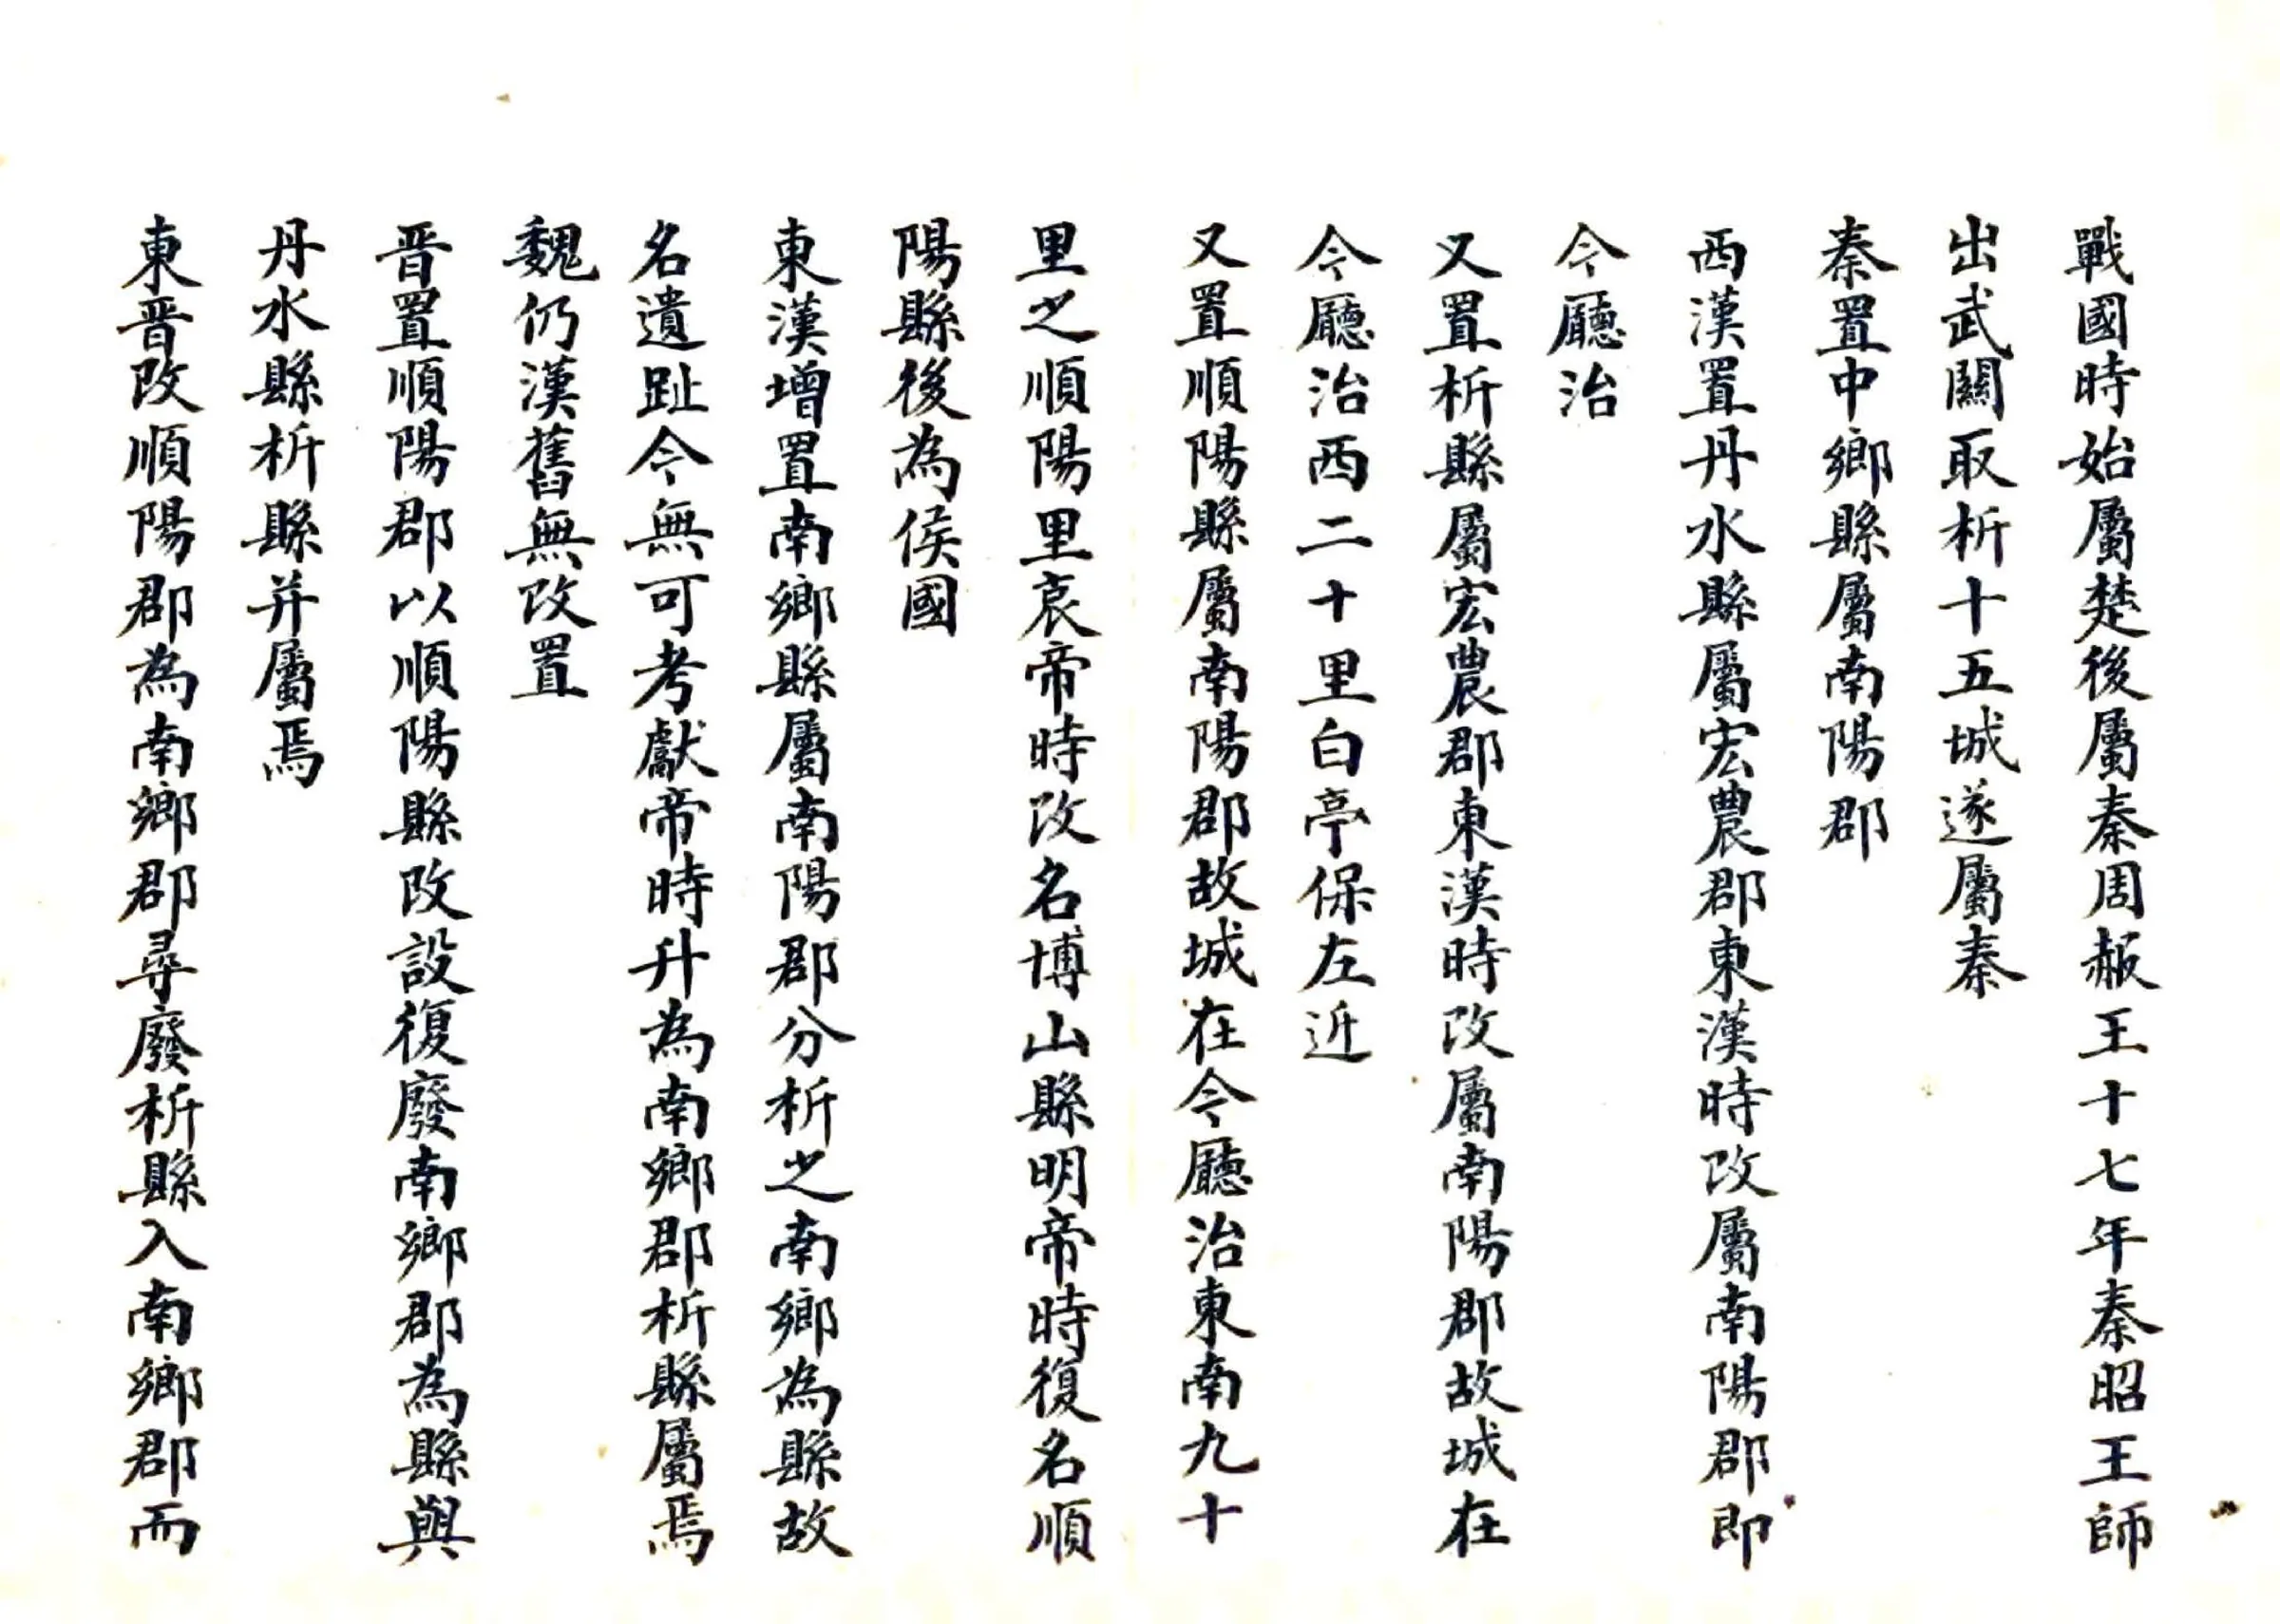 戰國時始屬楚後屬秦周赧王十七年秦昭王師
出武關取析十五城遂屬秦
秦置中鄉縣屬南陽郡
西漢置丹水縣屬宏農郡東漢時改屬南陽郡即
今廳治
又置析縣屬宏農郡東漢時改屬南陽郡故城在
今廳治西二十里白亭保左近
又置順陽縣屬南陽郡故城在今廳治東南九十
里之順陽里哀帝時改名博山縣明帝時復名順
陽縣後為侯國
東漢增置南鄉縣屬南陽郡分析之南鄉為縣故
名遺趾今無可考獻帝時升為南鄉郡析縣屬焉
魏仍漢舊無改置
晋置順陽郡以順陽縣改設復廢南鄉郡為縣與
丹水縣析縣并屬焉
東晋改順陽郡為南鄉郡尋廢析縣入南鄉郡而